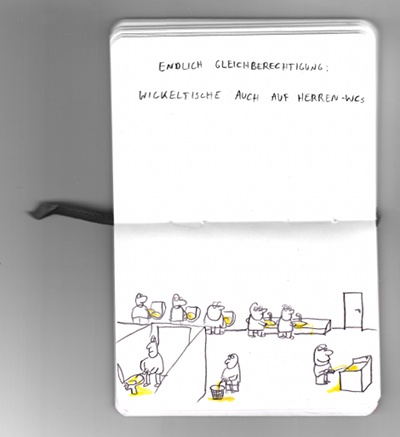 ENDLICH GLEICHBERECHTIGUNG:
WICKELTISCHE AUCH AUF HERREN-WCs